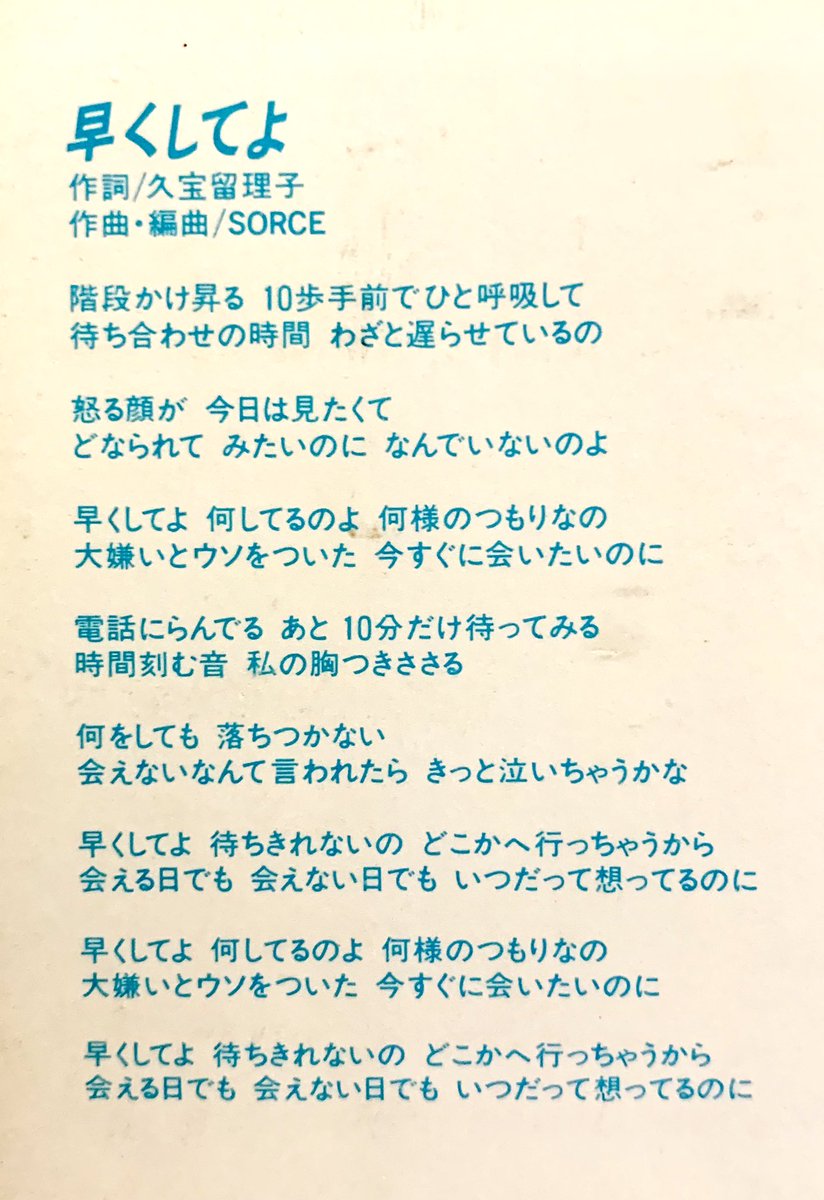 早くしてよ
作詞/久宝留理子
作曲・編曲/SORCE
階段かけ昇る 10歩手前でひと呼吸して
待ち合わせの時間 わざと遅らせているの
怒る顔が 今日は見たくて
どなられて みたいのに なんでいないのよ
早くしてよ 何してるのよ 何様のつもりなの
大嫌いとウソをついた 今すぐに会いたいのに
電話にらんでる あと10分だけ待ってみる
時間刻む音 私の胸つきささる
何をしても 落ちつかない
会えないなんて言われたら きっと泣いちゃうかな
早くしてよ 待ちきれないの どこかへ行っちゃうから
会える日でも 会えない日でも いつだって想ってるのに
早くしてよ 何してるのよ 何様のつもりなの
大嫌いとウソをついた 今すぐに会いたいのに
早くしてよ 待ちきれないの どこかへ行っちゃうから
会える日でも 会えない日でも いつだって想ってるのに